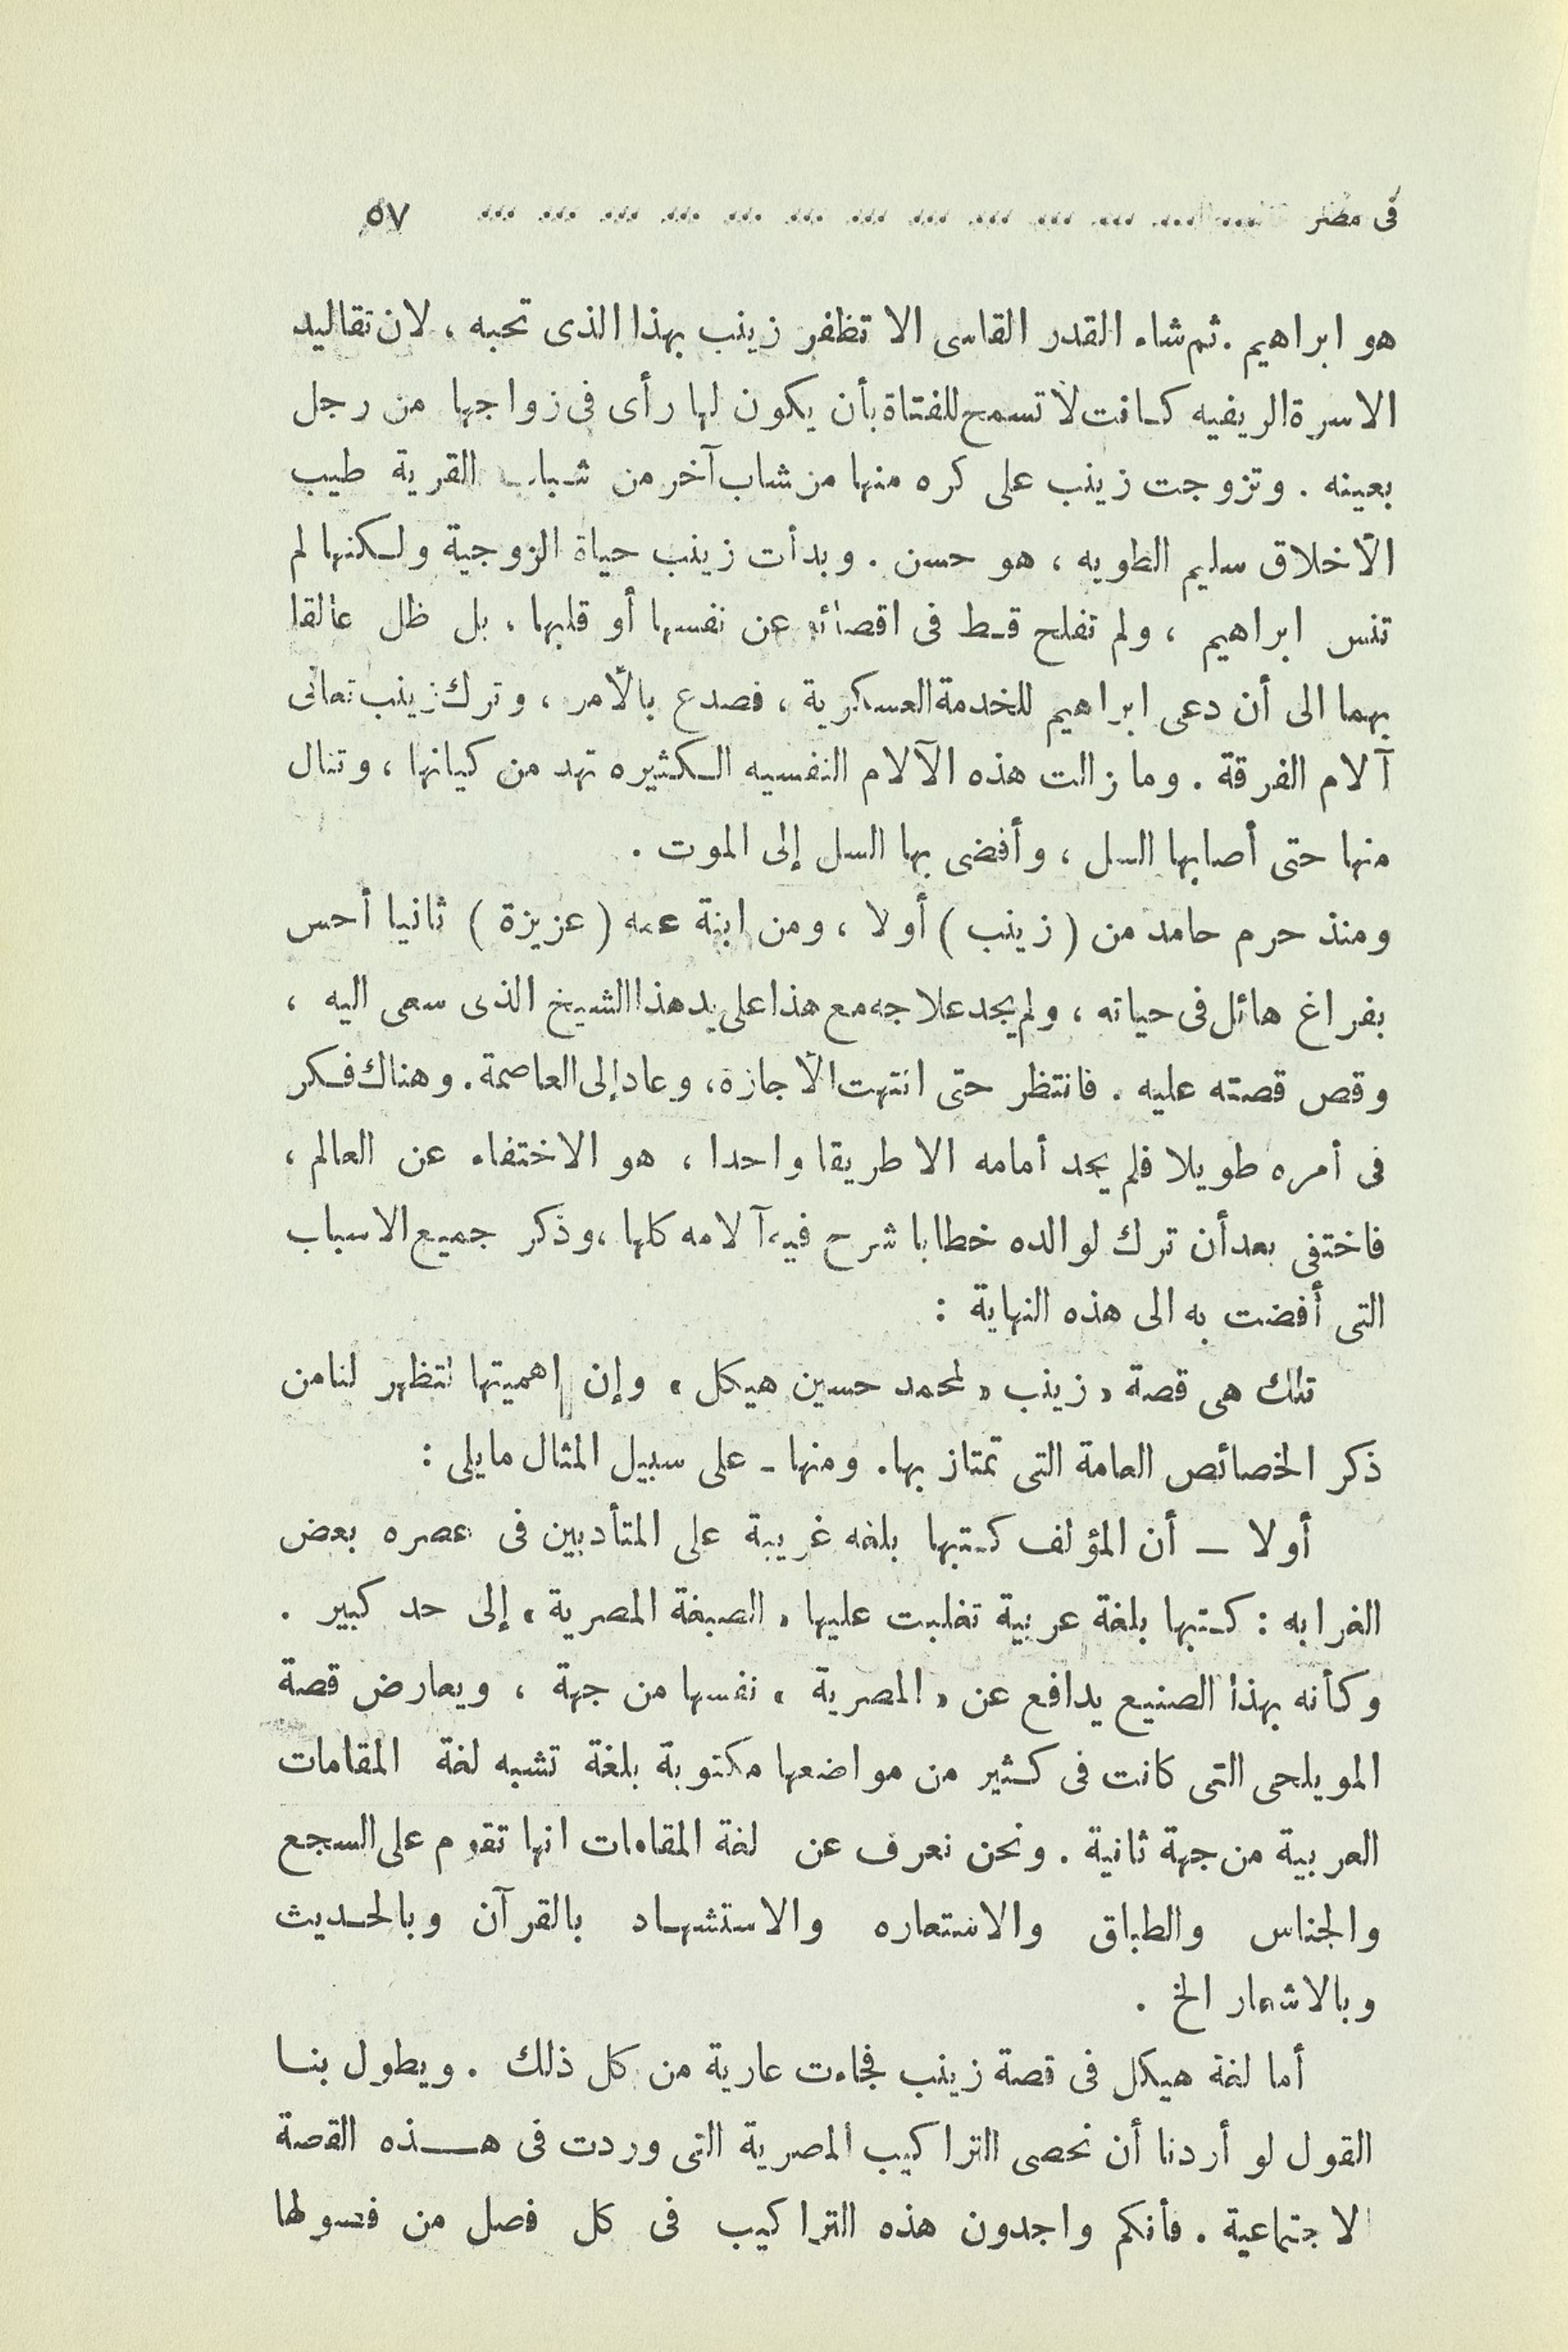 فى مصر ... ... ... ... ... ... ... ... ... ... ... ... ... ٥٧
هو ابراهيم . ثم شاء القدر القاسى الا تظفر زينب بهذا الذى تحبه ، لان تقاليد
الاسرة الريفيه كانت لا تسمح للفتاة بأن يكون لها رأى فى زواجها من رجل
بعينه . وتزوجت زينب على كره منها من شاب آخر من شباب القرية طيب
الأخلاق سليم الطويه ، هو حسن . وبدأت زينب حياة الزوجية ولكنها لم
تنس ابراهيم ، ولم تفلح قط فى اقصائه عن نفسها أو قلبها ، بل ظل عالقا
بهما الى أن دعى ابراهيم للخدمة العسكرية ، فصدع بالأمر ، وترك زينب تعانى
آلام الفرقة . وما زالت هذه الآلام النفسيه الكثيره تهد من كيانها ، وتنال
منها حتى أصابها السل ، وأفضى بها السل إلى الموت .
ومنذ حرم حامد من ( زينب ) أولا ، ومن ابنة عمه ( عزيزة ) ثانيا أحس
بفراغ هائل فى حياته ، ولم يجد علاجه مع هذا على يد هذا الشيخ الذى سعى اليه ،
وقص قصته عليه . فانتظر حتى انتهت الأجازة ، وعاد إلى العاصمة . وهناك فكر
فى أمره طويلا فلم يجد أمامه الا طريقا واحدا ، هو الاختفاء عن العالم ،
فاختفى بعد أن ترك لوالده خطابا شرح فيه آلامه كلها ، وذكر جميع الاسباب
التى أفضت به الى هذه النهاية :
تلك هى قصة « زينب « لمحمد حسين هيكل » وإن اهميتها لتظهر لنا من
ذكر الخصائص العامة التى تمتاز بها . ومنها - على سبيل المثال ما يلى :
أولا — أن المؤلف كتبها بلغه غريبة على المتأدبين فى عصره بعض
الغرابه : كتبها بلغة عربية تغلبت عليها « الصبغة المصرية » إلى حد كبير .
وكأنه بهذا الصنيع يدافع عن « المصرية » نفسها من جهة ، ويعارض قصة
المويلحى التى كانت فى كثير من مواضعها مكتوبة بلغة تشبه لغة المقامات
العربية من جهة ثانية . ونحن نعرف عن لغة المقامات انها تقوم على السجع
والجناس والطباق والاستعاره والاستشهاد بالقرآن وبالحديث
وبالاشعار الخ .
أما لغة هيكل فى قصة زينب فجاءت عارية من كل ذلك . ويطول بنا
القول لو أردنا أن نحصى التراكيب المصرية التى وردت فى هذه القصة
الاجتماعية . فأنكم واجدون هذه التراكيب فى كل فصل من فصولها